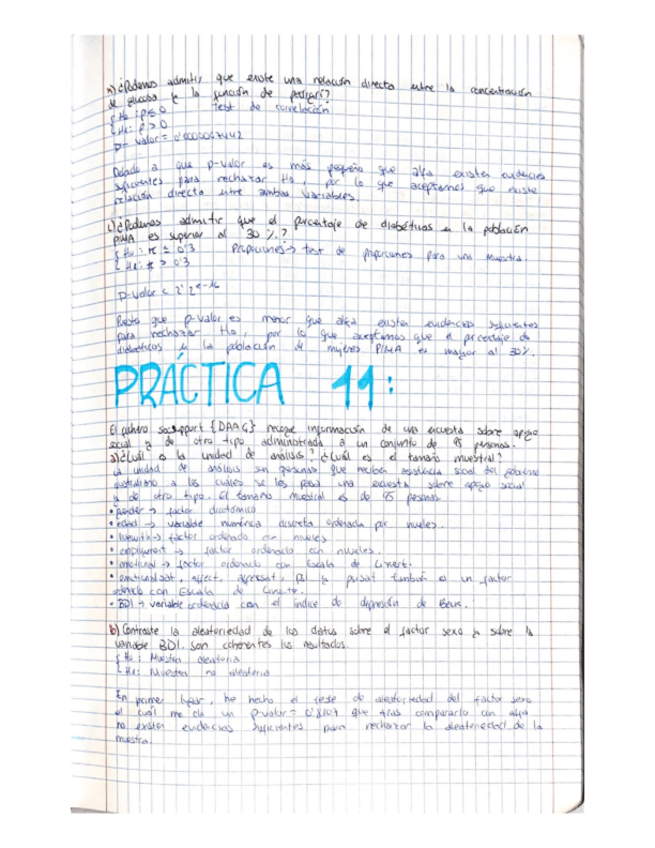 n) ¿Podemos admitir que existe una relación directa entre la concentración
de glucosa y la función de pedigarí?
{ H0: ρ ≤ 0 Test de correlación
{ H1: ρ > 0
p-valor =
Debido a que p-valor es más pequeño que alfa existen evidencias
suficientes para rechazar H0, por lo que aceptamos que existe
relación directa entre ambas variables.
¿Podemos admitir que el porcentaje de diabéticas en la población
PIMA es superior al 30%?
{ H0: π ≤ 0'3 Proporciones → test de proporciones para una muestra.
{ H1: π > 0'3
p-valor < 2'2e-16
Puesto que p-valor es menor que alfa existen evidencias suficientes
para rechazar H0, por lo que aceptamos que el porcentaje de
diabéticos en la población de mujeres PIMA es mayor al 30%.
PRÁCTICA 11:
El fichero socsupport {DAAG} recoge información de una encuesta sobre apoyo
social y de otro tipo administrada a un conjunto de 95 personas.
a) ¿Cuál es la unidad de análisis? ¿Cuál es el tamaño muestral?
La unidad de análisis son personas que reciben asistencia social del gobierno
australiano a las cuales se les pasa una encuesta sobre apoyo social
y de otro tipo. El tamaño muestral es de 95 personas.
• gender → factor dicotómico
• edad → variable numérica discreta ordenada por niveles.
• livewith → factor ordenado con niveles
• employment → factor ordenado con niveles.
• emotional → factor ordenado con Escala de Linert.
• emotionalsat, affect, affectsat, psi y psisat también es un factor
ordenado con Escala de
• BDI → variable ordenada con el índice de depresión de Beck.
b) Contraste la aleatoriedad de los datos sobre el factor sexo y sobre la
variable BDI. Son coherentes los resultados.
{ H0: Muestra aleatoria
{ H1: Muestra no aleatoria
En primer lugar, he hecho el teste de aleatoriedad del factor sexo
el cual me da un p-valor = 0'8107 que tras compararlo con alfa
no existen evidencias suficientes para rechazar la aleatoriedad de la
muestra.